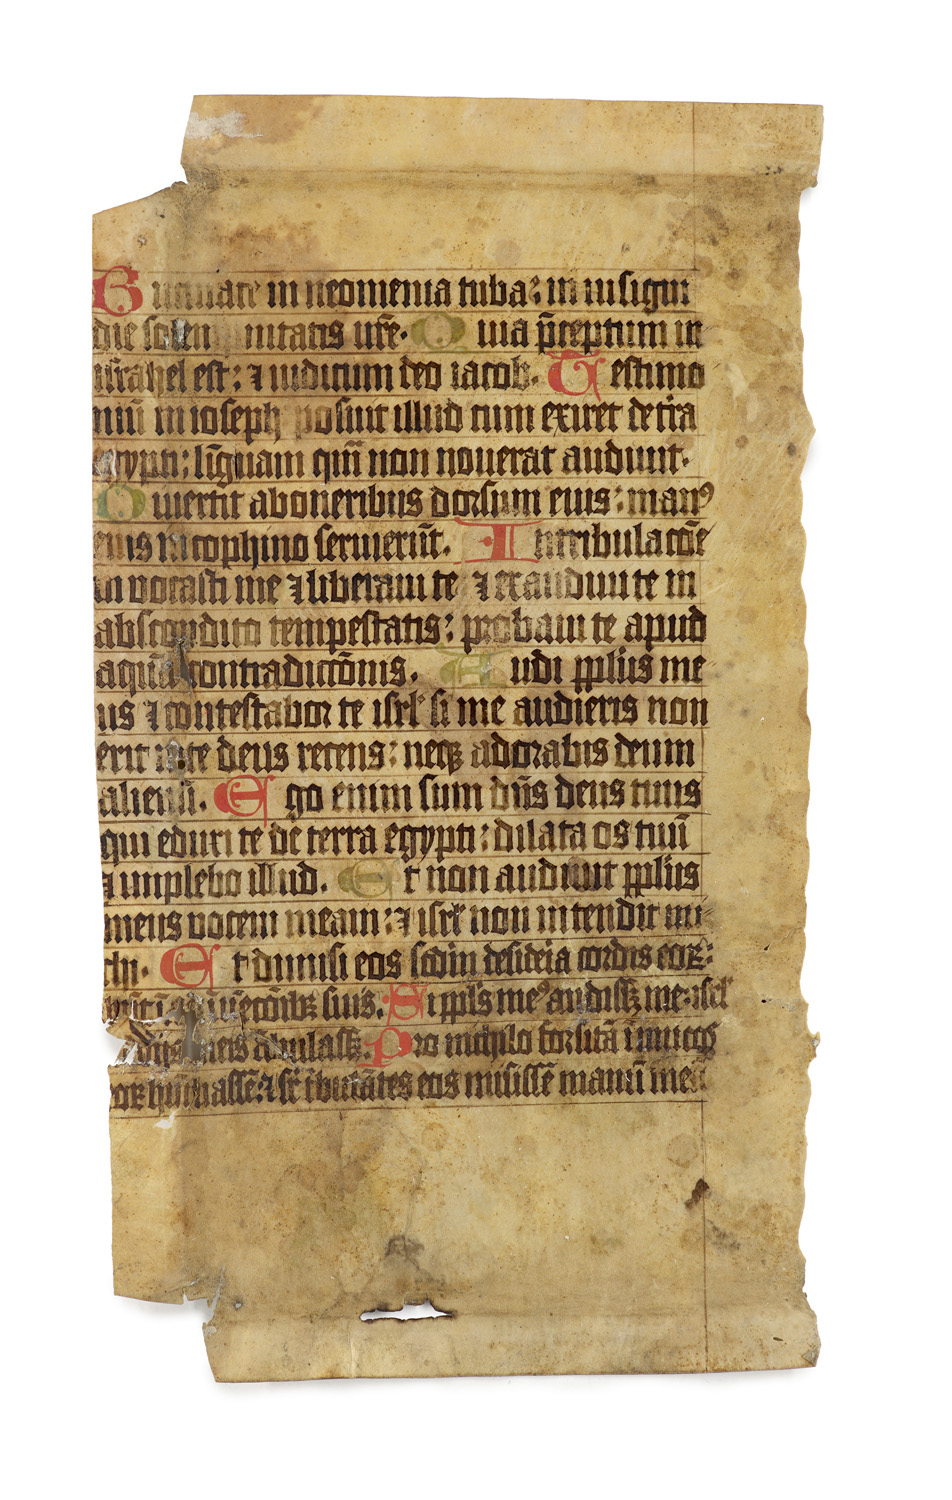 Bucinate in neomenia tuba: in insigni
die solempnitatis vr̄e. Quia p̄ceptum in
isrāhel est: ⁊ iudicium deo iacob. Testimo
niū in ioseph posuit illud cum exiret de tr̄a
egypti: līguam quā non nouerat audiuit.
Diuertit ab oneribus dorsum eius: manꝰ
eius in cophino seruierūt. In tribulacōe
inuocasti me ⁊ liberaui te ⁊ exaudiui te in
abscondito tempestatis: probaui te apud
aquā contradictōnis. Audi pplu̅s me
us ⁊ contestabor te isrl̄ si me audieris non
erit in te deus recens: neqꝫ adorabis deum
alienū. Ego enim sum dn̄s deus tuus
qui eduxi te de terra egypti: dilata os tuū
⁊ implebo illud. Et non audiuit pplu̅s
meus vocem meam: ⁊ isrl̄ non intendit mi
chi. Et dimisi eos scdm̄ desideīa cordis eoꝝ:
ibūt ī adīuētōibꝫ suis. Si ppl̄s meꝰ audissꝫ me: isrl̄
si ī viis meis ābulassꝫ. Pro nichilo forsitā īimicos
eoꝝ hūiliassē: ⁊ sr̄ t̄bulātes eos misissē manū meā